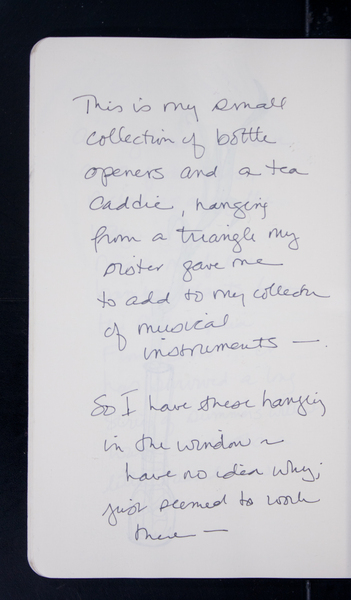 This is my small
collection of bottle
openers and a tea
caddie, hanging
from a triangle my
sister gave me
to add to my collection
of musical
instruments —.
So I have these hanging
in the window ~
have no idea why;
just seemed to work
there —